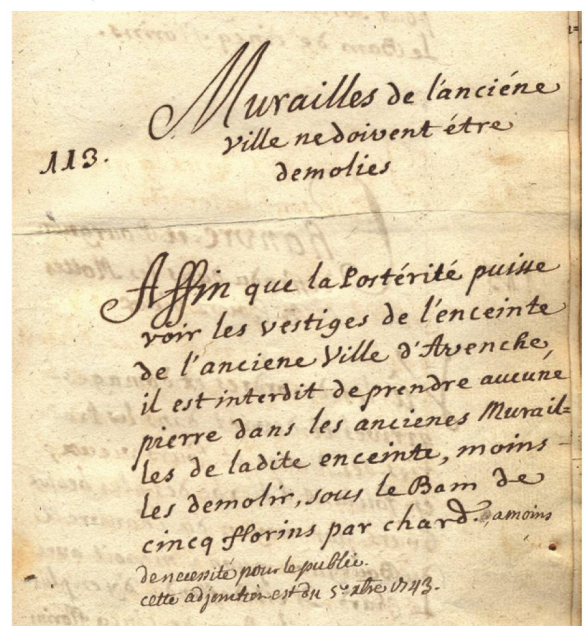 Murailles de l'anciéne
ville ne doivent étre
demolies
113.
Affin que la Postérité puisse
voir les vestiges de l'enceinte
de l'anciene Ville d'Avenche,
il est interdit de prendre aucune
pierre dans les ancienes Murail=
les de ladite enceinte, moins
les demolir, sous le Bam de
cinq florins par chard. , a moins
de necessité pour le public.
cette adjonction est du 5e xbre 1743.